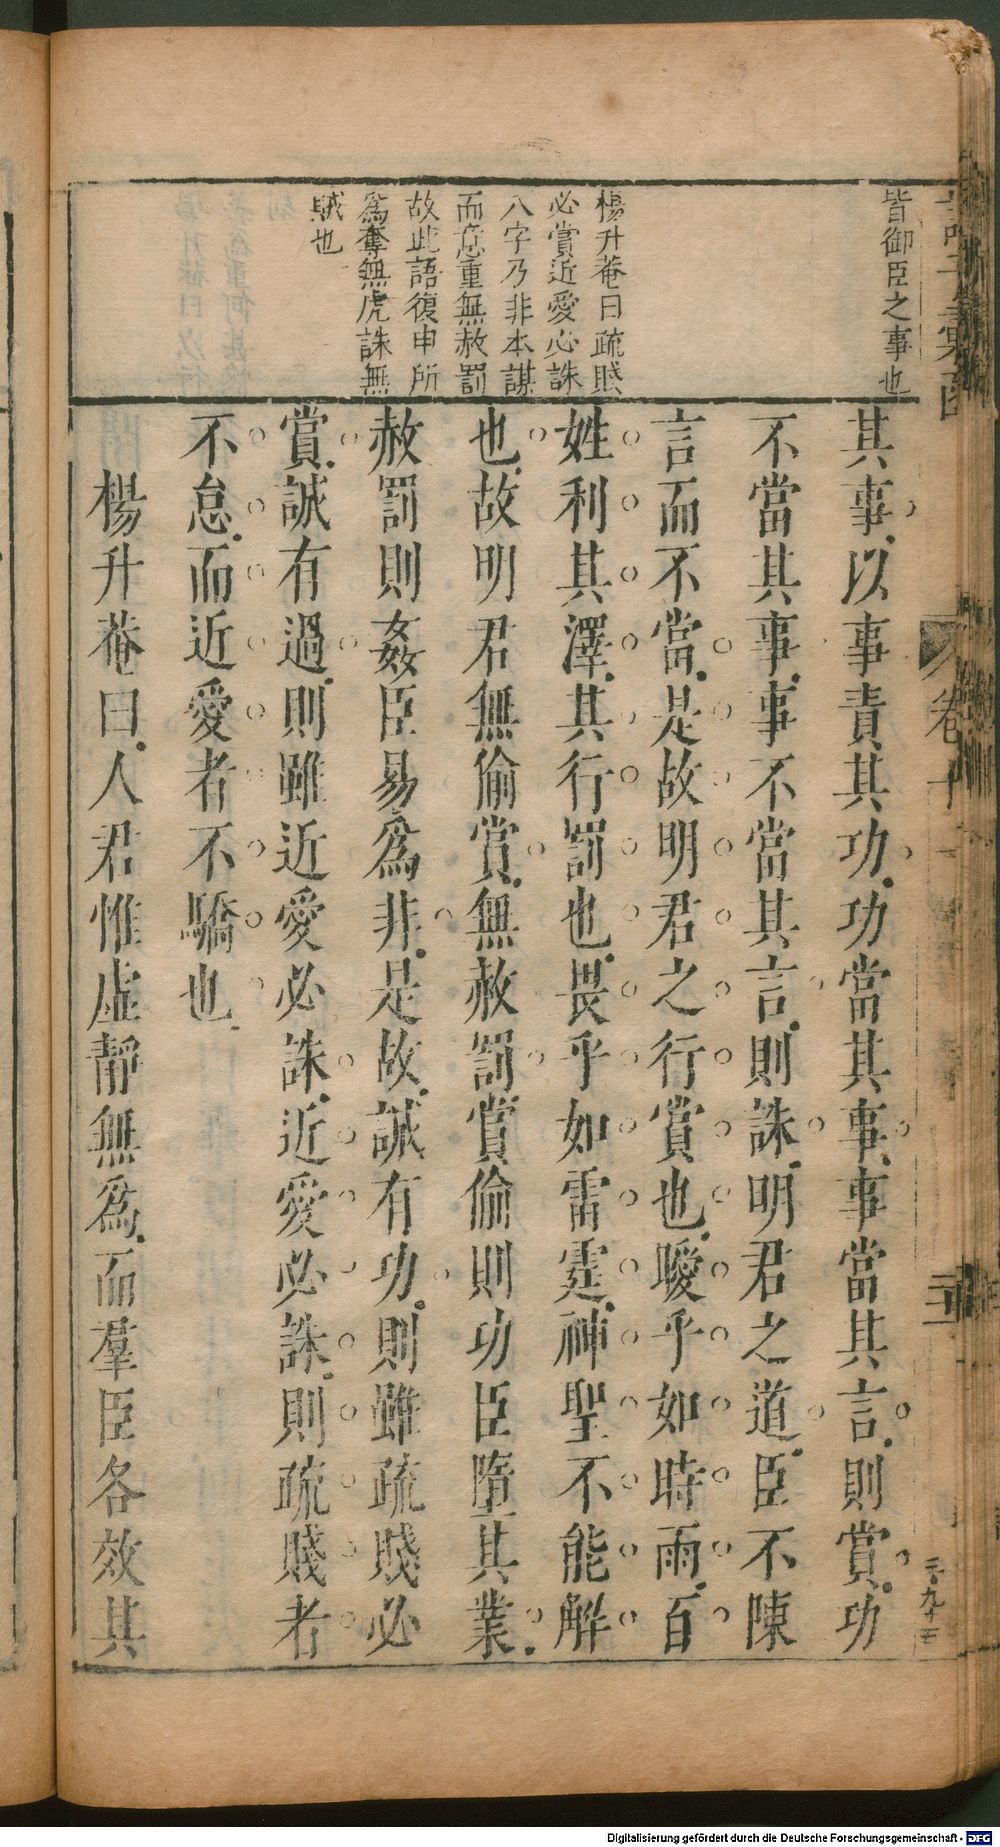 皆御臣之事也
楊升菴曰疏賤
必賞近愛必誅
八字乃非本謀
而意重無赦罰
故此語復申所
爲奪無虎誅無
賊也
其事以事責其功功當其事事當其言則賞功
不當其事事不當其言則誅明君之道臣不陳
言而不當是故明君之行賞也曖乎如時雨百
姓利其澤其行罰也畏乎如雷霆神聖不能解
也故明君無偷賞無赦罰賞偷則功臣墮其業
赦罰則姦臣易爲非是故誠有功則雖疏賤必
賞誠有過則雖近愛必誅近愛必誅則疏賤者
不怠而近愛者不驕也
楊升菴曰人君惟虛靜無爲而羣臣各效其
卷十
Digitalisierung gefördert durch die Deutsche Forschungsgemeinschaft - DFG